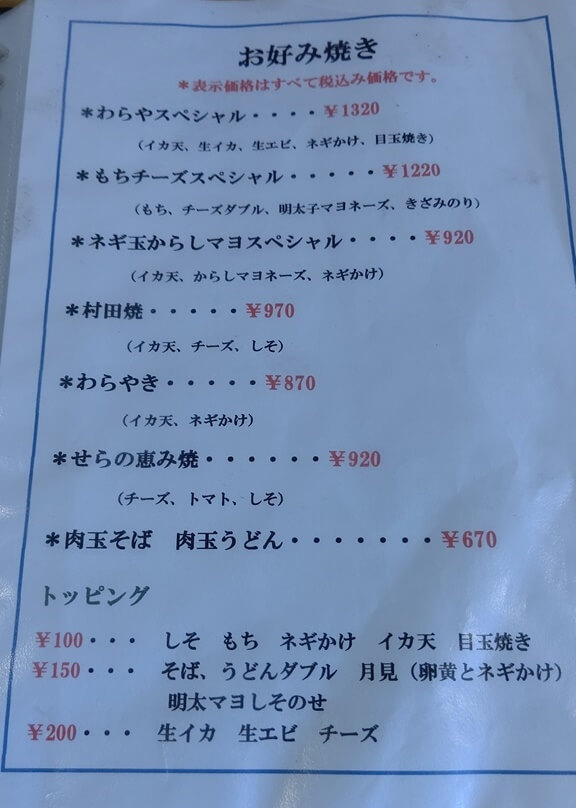 お好み焼き
*表示価格はすべて税込み価格です。
*わらやスペシャル・・・・¥1320
(イカ天、生イカ、生エビ、ネギかけ、目玉焼き)
*もちチーズスペシャル・・・・・¥1220
(もち、チーズダブル、明太子マヨネーズ、きざみのり)
*ネギ玉からしマヨスペシャル・・・・¥920
(イカ天、からしマヨネーズ、ネギかけ)
*村田焼・・・・・¥970
(イカ天、チーズ、しそ)
*わらやき・・・・・¥870
(イカ天、ネギかけ)
*せらの恵み焼・・・・・・¥920
(チーズ、トマト、しそ)
*肉玉そば 肉玉うどん・・・・・・・¥670
トッピング
¥100・・・ しそ もち ネギかけ イカ天 目玉焼き
¥150・・・ そば、うどんダブル 月見(卵黄とネギかけ)
明太マヨしそのせ
¥200・・・ 生イカ 生エビ チーズ